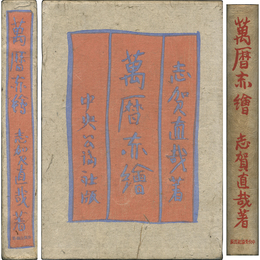 萬暦赤繪 志賀直哉著
志賀直哉著
萬暦赤繪
中央公論社版
萬暦赤繪 志賀直哉著